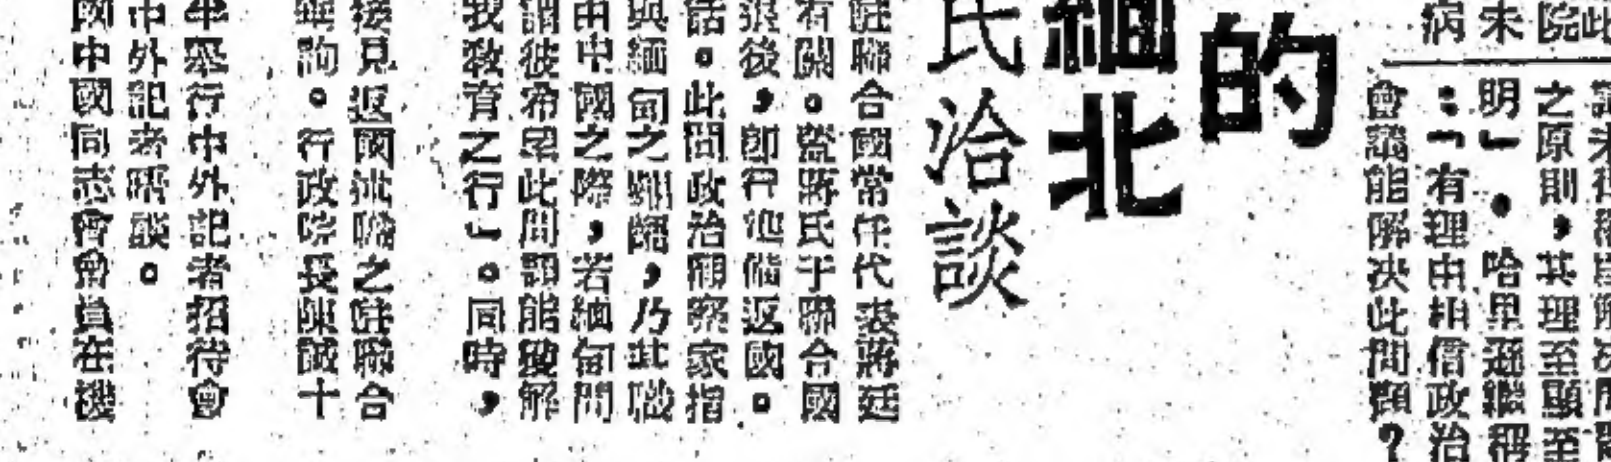 此
院
未
病
之原則，其理至顯至
明」。哈里遜繼稱
：「有理由相信政治
會議能解決此問題？
的
緬北
氏洽談
駐聯合國常任代表蔣廷
有關。盜蔣氏于聯合國
退後，即行池備返國。
話。此間政治觀察家指
與緬甸之糾紛，乃此職
由中國之際，若緬甸問
謂彼希望此間題能獲解
我敎育之行」。同時，
接見返國述職之駐聯合
垂詢。行政院長陳誠十
午舉行中外記者招待會
中外記者晤談。
國中國同志會會員在機